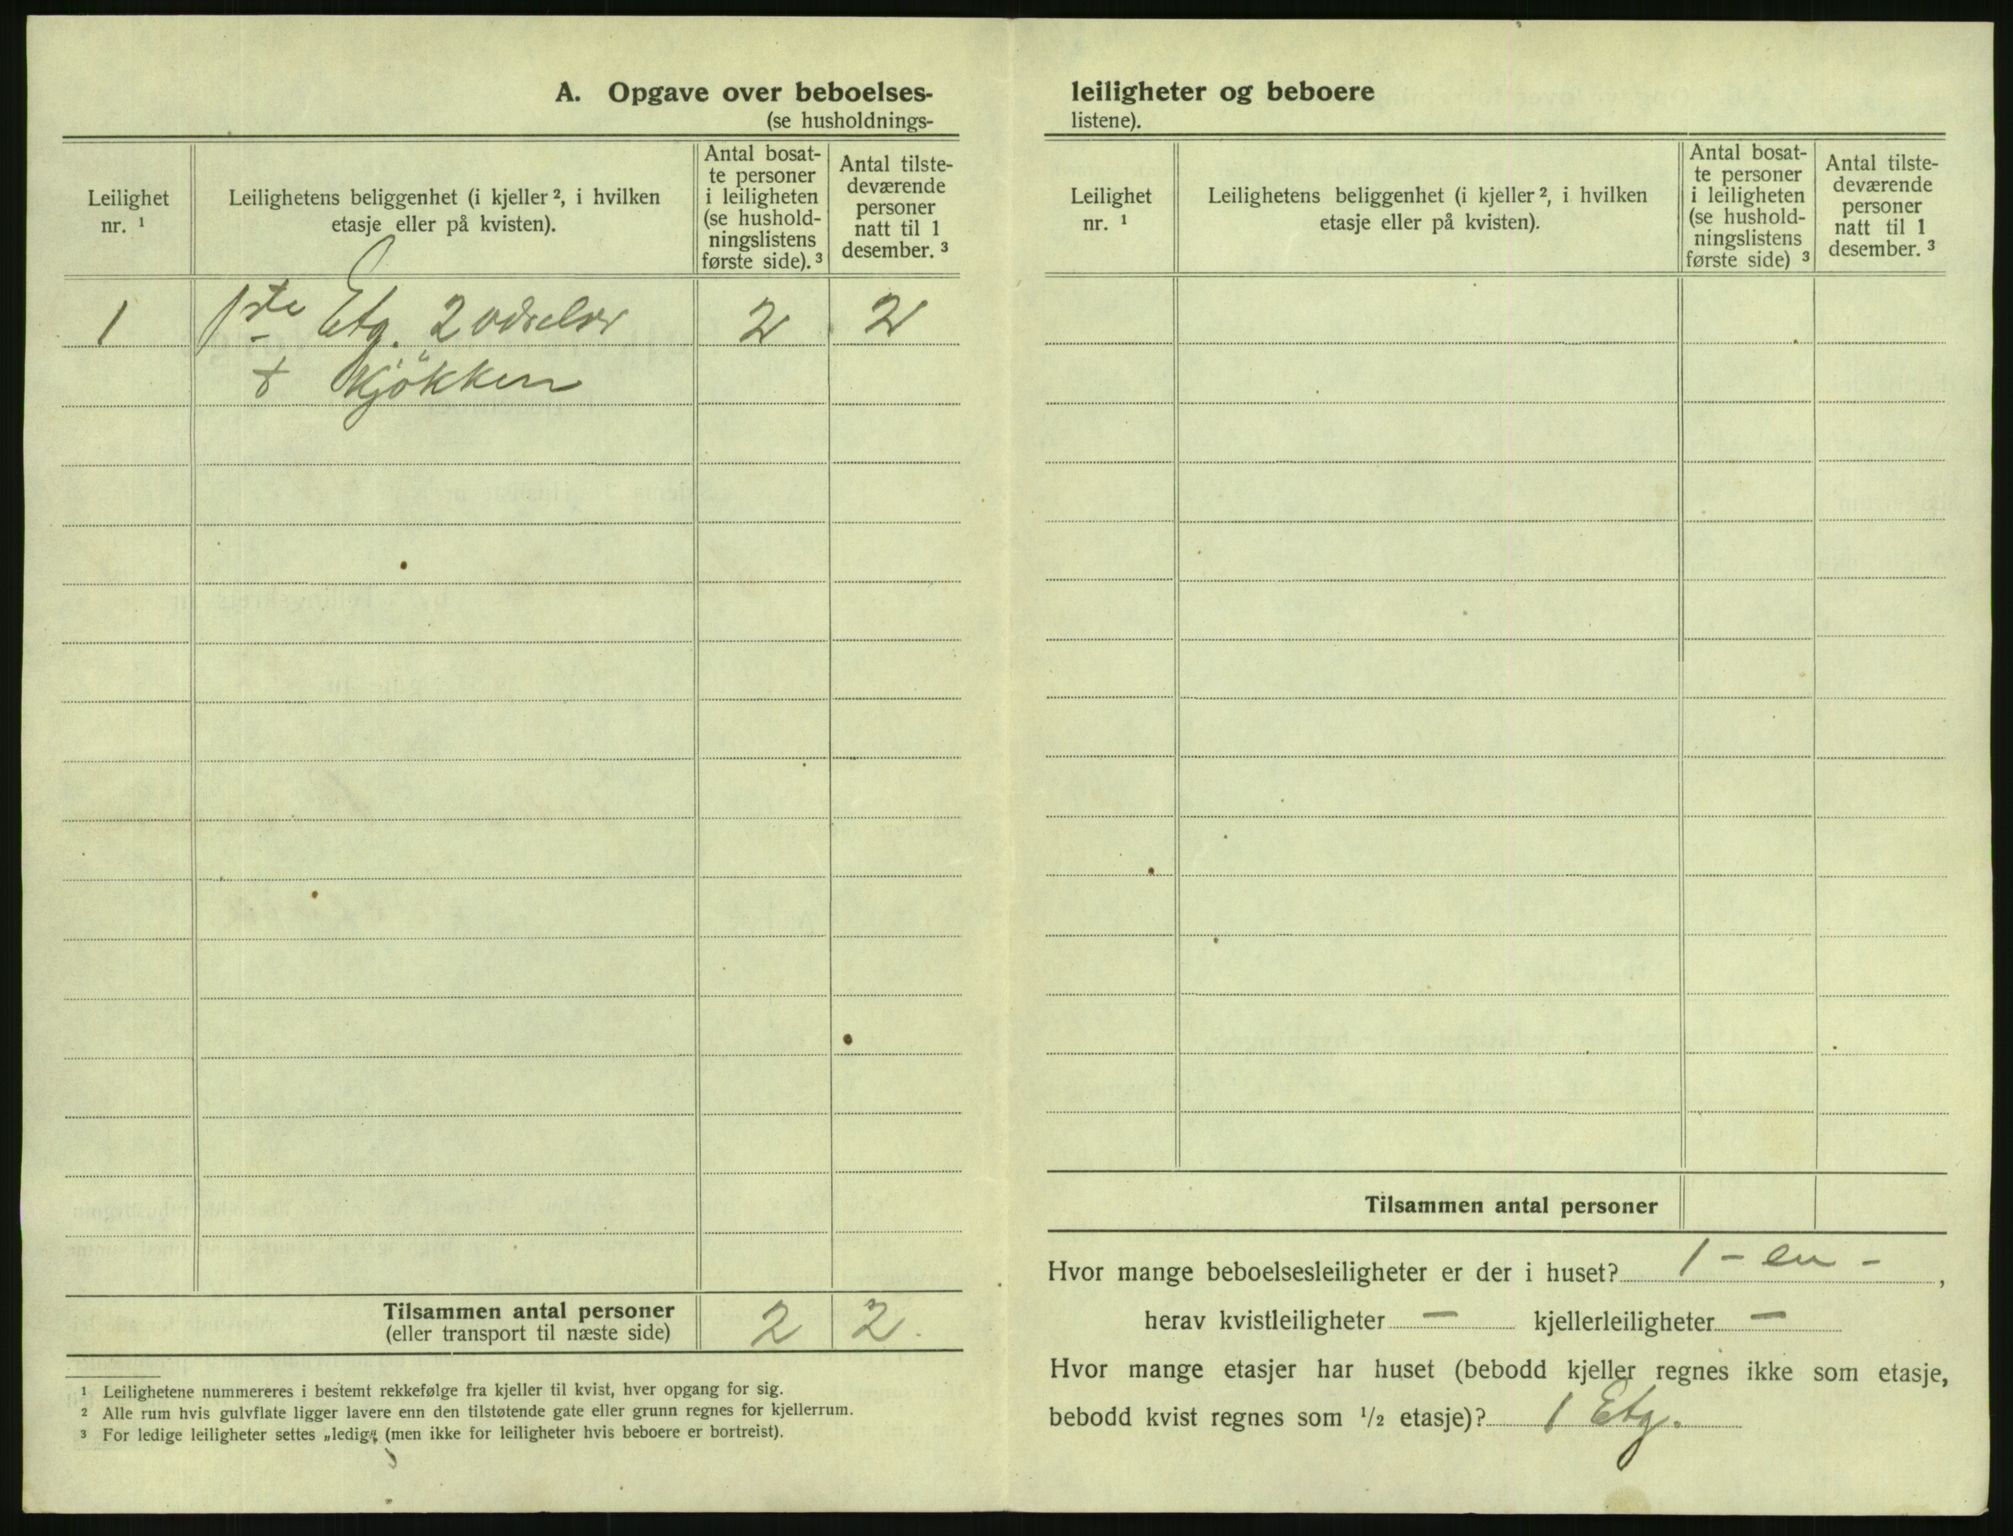 A. Opgave over beboelses-
(se husholdnings-
Leilighet
nr. ¹
Leilighetens beliggenhet (i kjeller ², i hvilken
etasje eller på kvisten).
Antal bosat-
te personer
i leiligheten
(se hushold-
ningslistens
første side). ³
Antal tilste-
deværende
personer
natt til 1
desember. ³
1 1ste Etg. 2 værelser 2 2
+ Kjökken
Tilsammen antal personer
(eller transport til næste side) 2 2.
¹ Leilighetene nummereres i bestemt rekkefølge fra kjeller til kvist, hver opgang for sig.
² Alle rum hvis gulvflate ligger lavere enn den tilstøtende gate eller grunn regnes for kjellerrum.
³ For ledige leiligheter settes „ledig“ (men ikke for leiligheter hvis beboere er bortreist).
leiligheter og beboere
listene).
Leilighet
nr. ¹
Leilighetens beliggenhet (i kjeller ², i hvilken
etasje eller på kvisten).
Antal bosat-
te personer
i leiligheten
(se hushold-
ningslistens
første side) ³
Antal tilste-
deværende
personer
natt til 1
desember. ³
Tilsammen antal personer
Hvor mange beboelsesleiligheter er der i huset? 1 - en - ,
herav kvistleiligheter — kjellerleiligheter —
Hvor mange etasjer har huset (bebodd kjeller regnes ikke som etasje,
bebodd kvist regnes som ½ etasje)? 1 Etg.